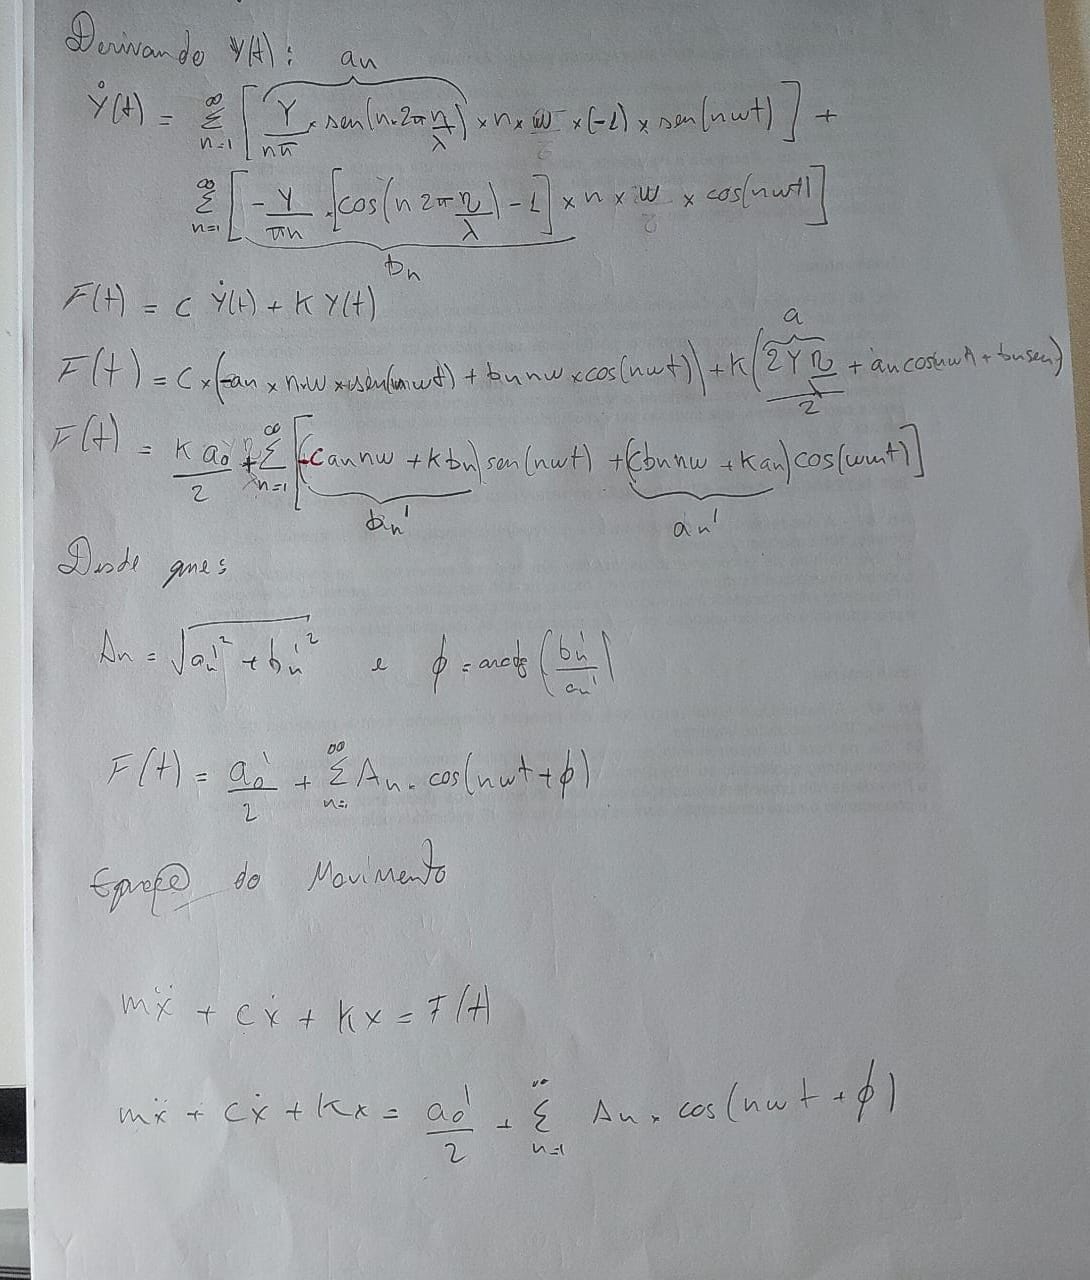 Derivando Y(t): an
Ẏ(t) = ∞ Σ n=1 [ Y/nπ × sen(n·2π η/λ) × n × w × (-1) × sen(nwt) ] +
∞ Σ n=1 [ - Y/πn · [cos(n 2π η/λ) - 1] × n × w × cos(nwt) ]
bn
F(t) = c Ẏ(t) + K Y(t)
a
F(t) = c × (-an × n × w × sen(nwt) + bn nw × cos(nwt)) + K ( 2Y η/λ / 2 + an cos nwt + bn sen
F(t) = K a0 / 2 + ∞ Σ n=1 [ (-c an nw + K bn) sen(nwt) + (c bn nw + K an) cos(wnt) ]
bn' an'
Desde que
An = √(an'² + bn'²) e ϕ = arctg (bn'/an')
F(t) = a0'/2 + ∞ Σ n=1 An · cos(nwt + ϕ)
Equação do Movimento
mẍ + cẋ + Kx = F(t)
mẍ + cẋ + Kx = a0'/2 + ∞ Σ n=1 An · cos(nwt + ϕ)